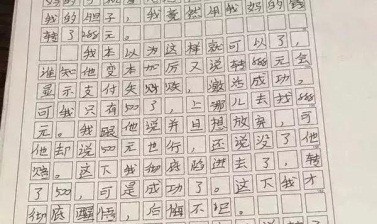 我的胆子，我竟然用我妈的钱
转了888元。
我本以为这样就可以了，
谁知他变本加厉又说转888元怎
显示支付失败，激活成功。
可我只有500了，上哪儿去找888
元。我跟他说并且想放弃，可
他却说500元也行，还说没了他
赔。这下我彻底陷进去了，转
了500，可是成功了。这下我才
彻底醒悟，后悔不已。